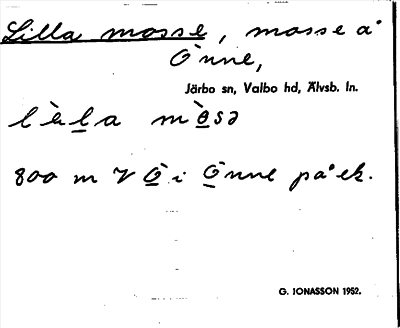 Lilla mosse, mosse å
Önne,
Järbo sn, Valbo hd, Älvsb. ln.
800 m V Ö i Önne på ek.
G. JONASSON 1952.